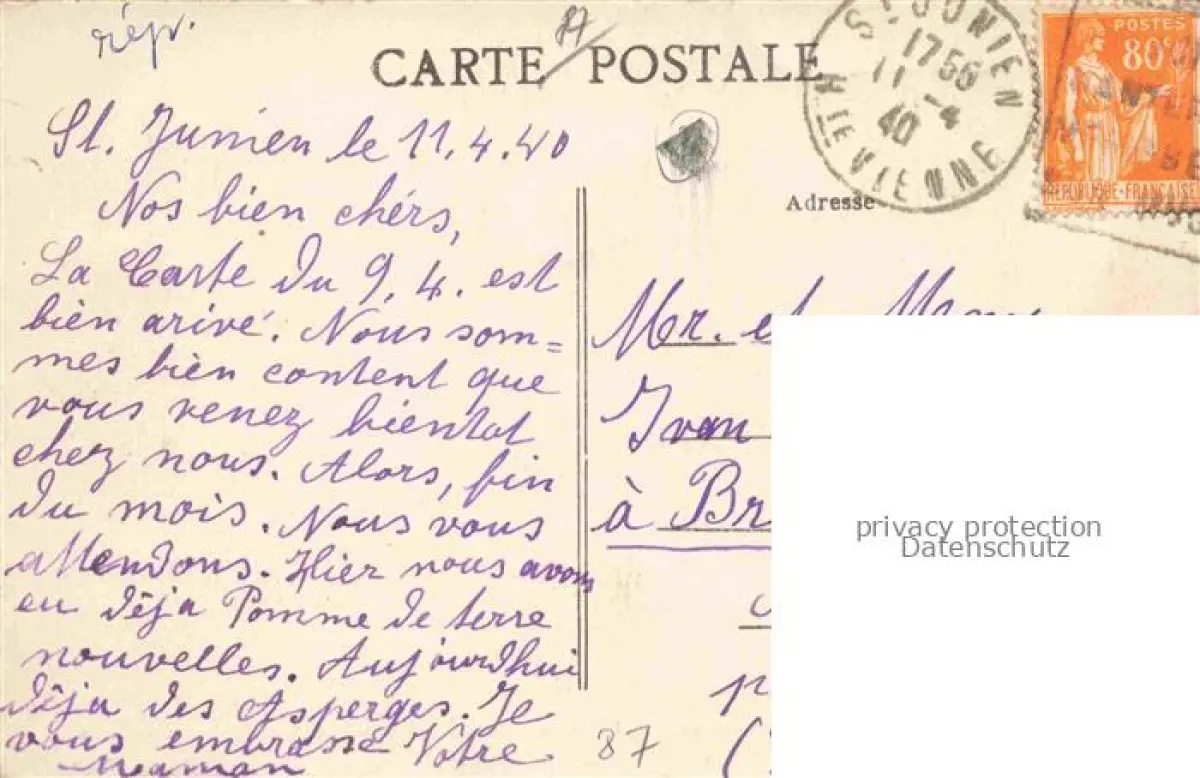 rép.
87
CARTE POSTALE
St JUNIEN
1756
11-4
40
HTE VIENNE
POSTES
80c
REPUBLIQUE-FRANÇAISE
St. Junien le 11.4.40
Nos bien chérs,
La Carte du 9.4. est
bien arivé. Nous som=
mes bien content que
vous venez bientot
chez nous. Alors, fin
du mois. Nous vous
attendons. Hier nous avons
eu dêja Pomme de terre
nouvelles. Aujourdhui
dêja des Asperges. Je
vous embrasse Votre
Maman
Adresse
Mr. et Mme
Ivan
à Br
privacy protection
Datenschutz
87